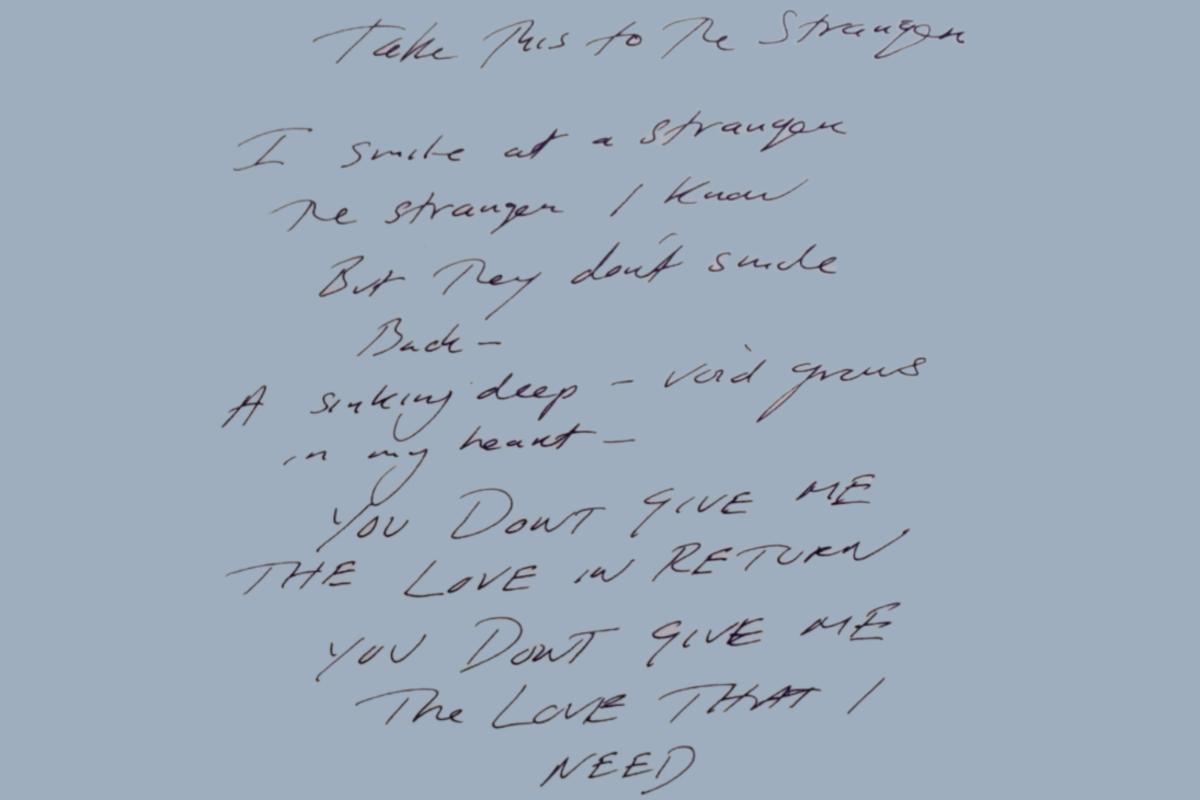 Take This to The Stranger
I smile at a stranger
The stranger I Know
But They don't smile
Back -
A sinking deep - void grows
in my heart -
YOU DONT GIVE ME
THE LOVE IN RETURN
YOU DONT GIVE ME
The LOVE THAT I
NEED